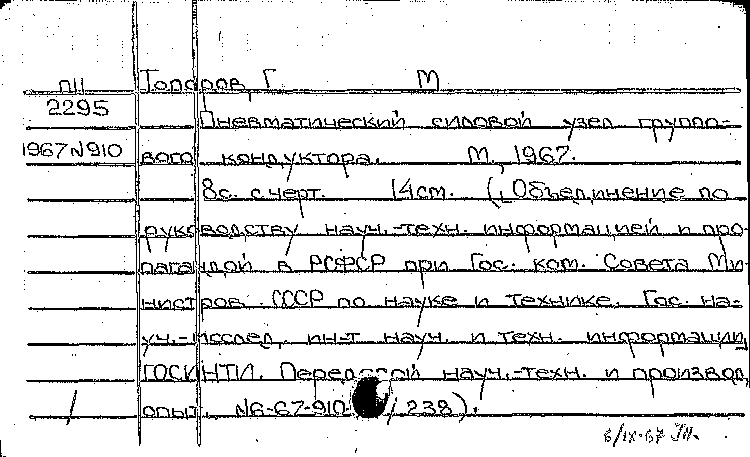 П11 Топоров, Г. М
2295
Пневматический силовой узел группо-
1967 N910 вого кондуктора. М., 1967.
8с. с черт. 14см. (Объединение по
руководству науч.-техн. информацией и про-
пагандой в РСФСР при Гос. ком. Совета Ми-
нистров СССР по науке и технике. Гос. на-
уч.-исслед. ин-т науч. и техн. информации
ГОСИНТИ. Передовой науч.-техн. и производ.
опыт. N6-67-910 / 238).
6/IX-67